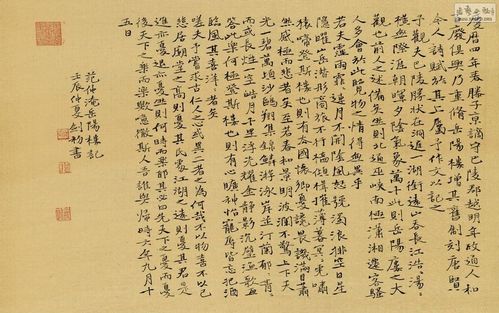 慶曆四年春滕子京謫守巴陵郡越明年政通人和
百廢俱興乃重脩岳陽樓增其舊制刻唐賢
今人詩賦於其上屬予作文以記之
予觀夫巴陵勝狀在洞庭一湖銜遠山吞長江浩浩湯湯
橫無際涯朝暉夕陰氣象萬千此則岳陽樓之大
觀也前人之述備矣然則北通巫峽南極瀟湘遷客騷
人多會於此覽物之情得無異乎
若夫霪雨霏霏連月不開陰風怒號濁浪排空日星
隱曜山岳潛形商旅不行檣傾楫摧薄暮冥冥虎嘯
猿啼登斯樓也則有去國懷鄉憂讒畏譏滿目蕭
然感極而悲者矣至若春和景明波瀾不驚上下天
光一碧萬頃沙鷗翔集錦鱗游泳岸芷汀蘭郁郁青青
而或長煙一空皓月千里浮光耀金靜影沉璧漁歌互
答此樂何極登斯樓也則有心曠神怡寵辱皆忘把酒
臨風其喜洋洋者矣
嗟夫予嘗求古仁人之心或異二者之為何哉不以物喜不以己
悲居廟堂之高則憂其民處江湖之遠則憂其君是
進亦憂退亦憂然則何時而樂耶其必曰先天下之憂而憂
後天下之樂而樂歟噫微斯人吾誰與歸時六年九月十
五日
范仲淹岳陽樓記
壬辰仲夏 書